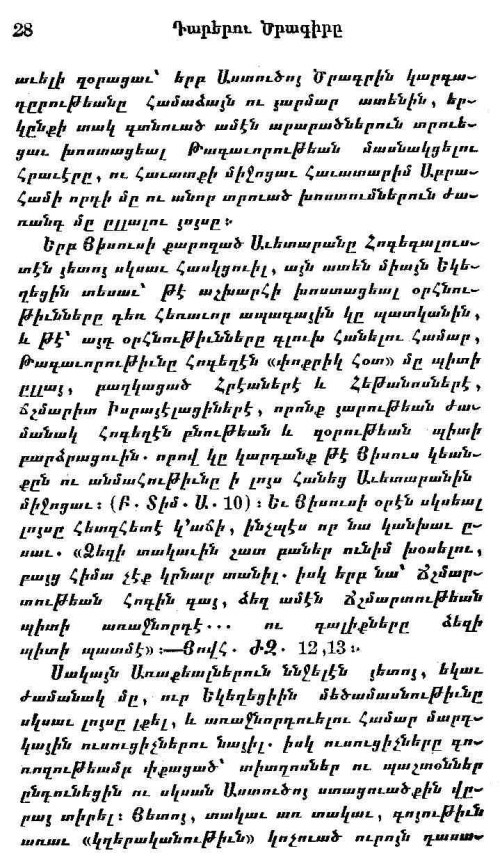 28
Դարերու Ծրագիրը
աւելի զօրացաւ՝ երբ Աստուծոյ Ծրագրին կարգա-
դըրութեանը համաձայն ու յարմար ատենին, եր-
կընքի տակ գտնուած ամէն արարածներուն տրուե-
ցաւ խոստացեալ Թագաւորութեան մասնակցելու
հրաւէրը, ու հաւատքի միջոցաւ հաւատարիմ Աբրա-
համի որդի մը ու անոր տրուած խոստումներուն ժա-
ռանգ մը ըլլալու յոյսը։
Երբ Յիսուսի քարոզած Աւետարանը Հոգեգալուս-
տէն յետոյ սկսաւ հասկցուիլ, այն ատեն միայն Եկե-
ղեցին տեսաւ՝ թէ աշխարհի խոստացեալ օրհնու-
թիւնները դեռ հեռաւոր ապագային կը պատկանին,
և թէ՝ այդ օրհնութիւնները գլուխ հանելու համար,
Թագաւորութիւնը հոգեղէն «փոքրիկ հօտ» մը պիտի
ըլլայ, բաղկացած Հրէաներէ և Հեթանոսներէ,
ճշմարիտ Իսրայէլացիներէ, որոնք յարութեան ժա-
մանակ հոգեղէն բնութեան և զօրութեան պիտի
բարձրացուին. որով կը կարդանք թէ Յիսուս կեան-
քըն ու անմահութիւնը ի լոյս հանեց Աւետարանին
միջոցաւ։ (Բ. Տիմ. Ա. 10)։ Եւ Յիսուսի օրէն սկսեալ
լոյսը հետզհետէ կ՚աճի, ինչպէս որ նա կանխաւ ը-
սաւ. «Ձեզի տակաւին շատ բաներ ունիմ խօսելու,
բայց հիմա չէք կրնար տանիլ. իսկ երբ նա՝ Ճշմար-
տութեան Հոգին գայ, ձեզ ամէն ճշմարտութեան
պիտի առաջնորդէ... ու գալիքները ձեզի
պիտի պատմէ»։—Յովհ. ԺԶ. 12,13։
Սակայն Առաքեալներուն ննջելէն յետոյ, եկաւ
ժամանակ մը, ուր Եկեղեցիին մեծամասնութիւնը
սկսաւ լոյսը լքել, և առաջնորդուելու համար մարդ-
կային ուսուցիչներու նայիլ. իսկ ուսուցիչները գո-
ռոզութեամբ փքացած՝ տիտղոսներ ու պաշտօններ
ընդունեցին ու սկսան Աստուծոյ ստացուածքին վը-
րայ տիրել։ Յետոյ, տակաւ առ տակաւ, գոյութիւն
առաւ «կղերականութիւն» կոչուած ուրոյն դասա-